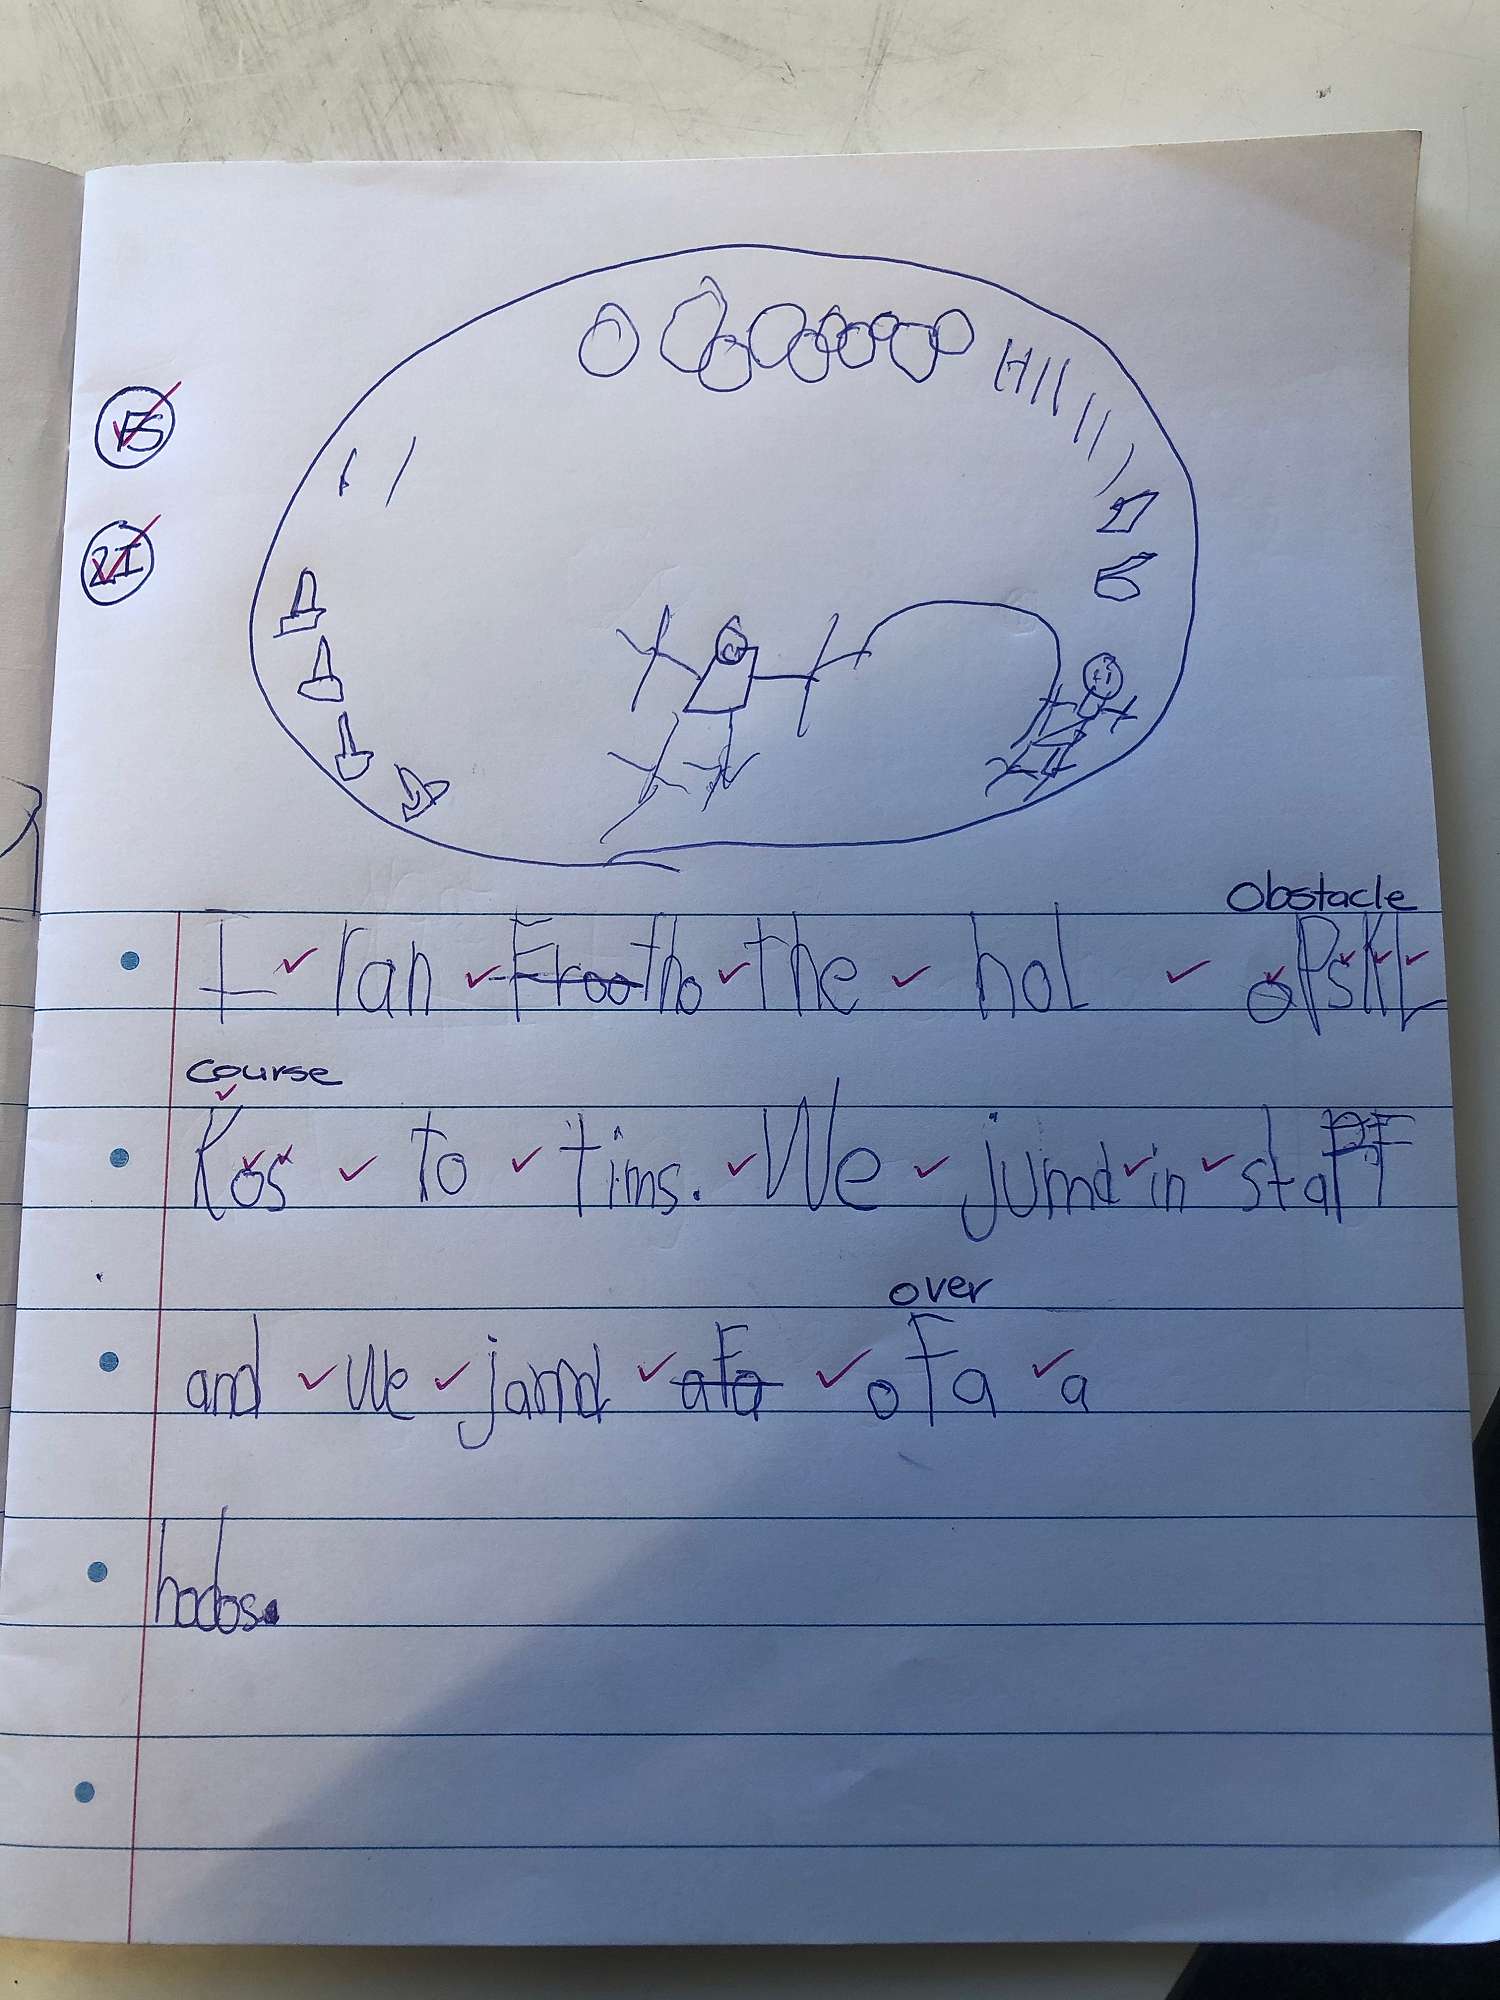 FS
2I
Obstacle
I ran Froo tho the hol oPsKL
course
Kos to tims. We jumd in staFF
over
and we jamd afa oFa a
hodos.